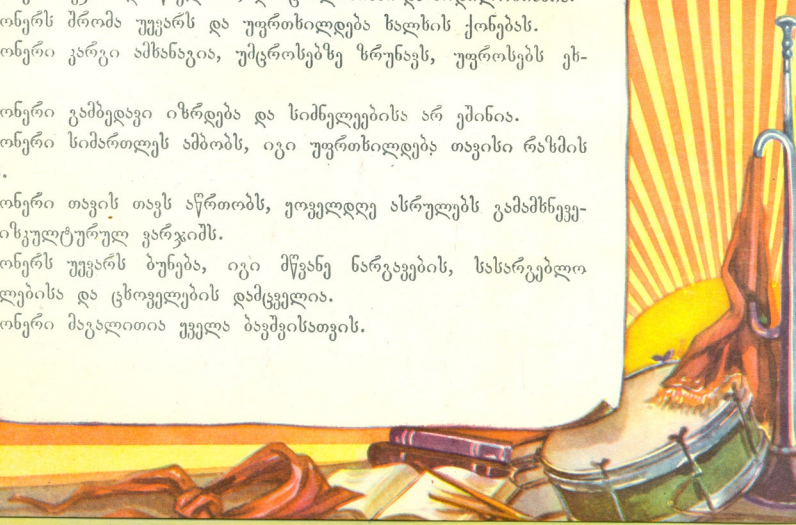 ონერს შრომა უყვარს და უფრთხილდება ხალხის ქონებას.
ონერი კარგი ამხანაგია, უმცროსებზე ზრუნავს, უფროსებს ეხ-
ონერი გამბედავი იზრდება და სიძნელეებისა არ ეშინია.
ონერი სიმართლეს ამბობს, იგი უფრთხილდება თავისი რაზმის
.
ონერი თავის თავს აწრთობს, ყოველდღე ასრულებს გამამხნევე-
იზკულტურულ ვარჯიშს.
ონერს უყვარს ბუნება, იგი მწვანე ნარგავების, სასარგებლო
ლებისა და ცხოველების დამცველია.
ონერი მაგალითია ყველა ბავშვისათვის.